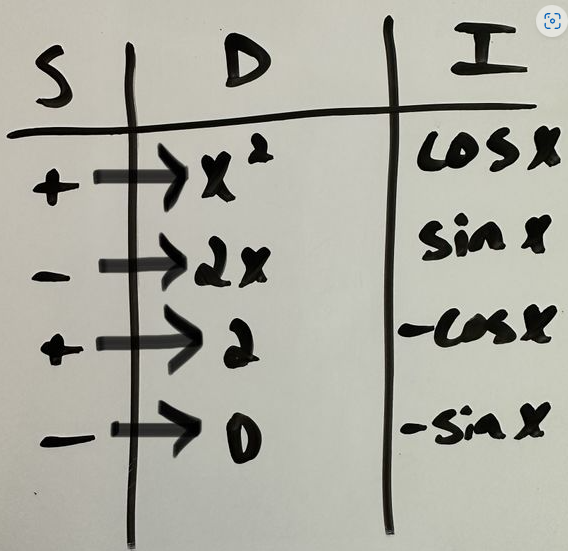 S D I
+ → x² cos x
- → 2x sin x
+ → 2 -cos x
- → 0 -sin x